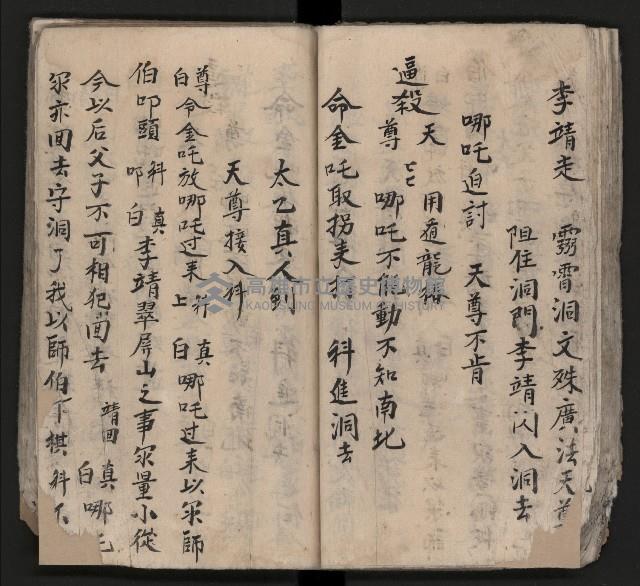 李靖走　霧霄洞文殊廣法天尊
阻住洞門李靖閃入洞去
哪吒迫討　天尊不肯
逼殺天　用遁龍樁
尊　哪吒不能動不知南北
命金吒取拐来　科進洞去
太乙真人到
天尊接入科
尊白令金吒放哪吒过来上　真白哪吒过来以尔師
伯叩頭科叩　真白李靖翠屏山之事尔量小從
今以后父子不可相犯回去　靖回　真白哪吒
尔亦回去守洞了我以師伯下棋科
高雄市立歷史博物館
KAOHSIUNG MUSEUM OF HISTORY